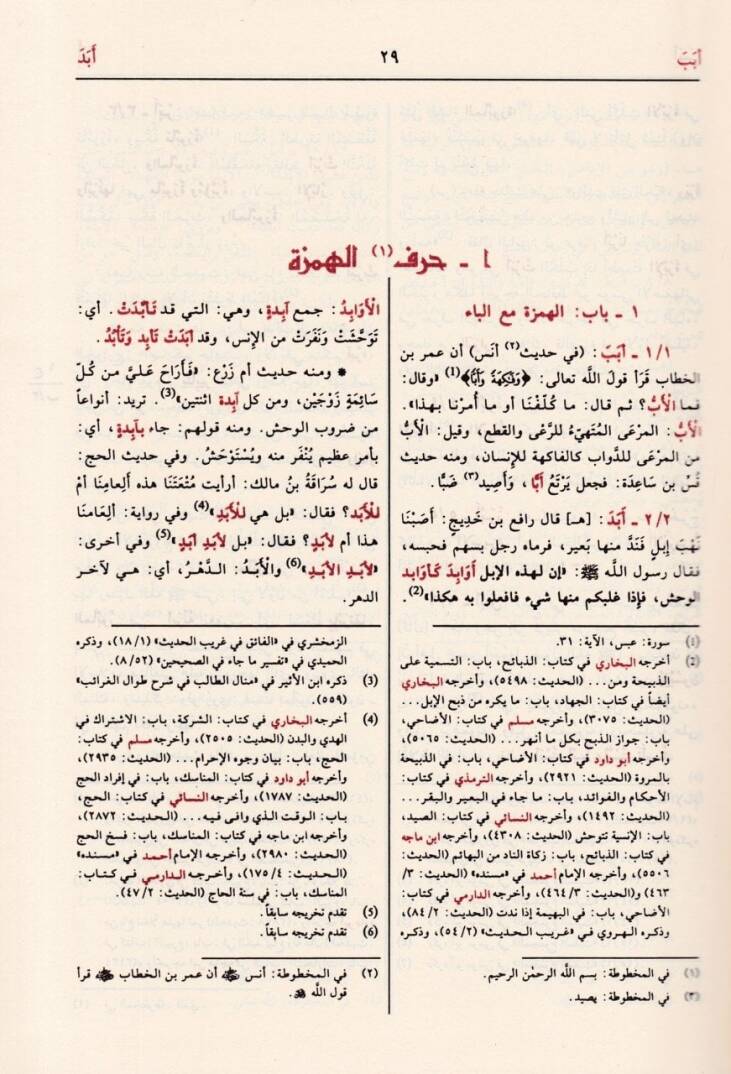 أبَبَ
٢٩
أَبَدَ
١ ـ حرف(١) الهمزة
١ ـ باب: الهمزة مع الباء
١/١ ـ أَبَبَ: (في حديث(٢) أنس) أن عمر بن
الخطاب قَرَأ قولَ اللَّه تعالى: ﴿وَفَكِهَةً وَأَبًّا﴾(1) «وقال:
فما الأَبُّ؟ ثم قال: ما كُلِّفْنَا أو ما أُمرْنا بهذا».
الأَبُّ: المرْعَى المُتَهيّءُ للرَّعْى والقطع، وقيل: الأَبُّ
من المرْعَى للدَّواب كالفاكهة للإنسان، ومنه حديث
قُسّ بن سَاعِدَة: فجعل يَرْتَعُ أَبًّا، وَأَصِيد(٣) ضَبًّا.
٢/٢ ـ أَبَدَ: [هـ] قال رافع بن خَدِيجٍ: أَصَبْنَا
نَهْبَ إِبلٍ فَنَدَّ منها بَعير، فرماه رجل بسهم فحبسه،
فقال رسول اللَّه ﷺ: «إن لهذه الإبل أَوَابِدَ كَأوَابِد
الوحش، فإِذا غلبكم منها شيء فافعلوا به هكذا»(2).
(٤) سورة: عبس، الآية: ٣١.
(2) أخرجه البخاري في كتاب: الذبائح، باب: التسمية على
الذبيحة ومن... (الحديث: ٥٤٩٨)، وأخرجه البخاري
أيضاً في كتاب: الجهاد، باب: ما يكره من ذبح الإبل...
(الحديث: ٣٠٧٥)، وأخرجه مسلم في كتاب: الأضاحي،
باب: جواز الذبح بكل ما أنهر... (الحديث: ٥٠٦٥)،
وأخرجه أبو داود في كتاب: الأضاحي، باب: في الذبيحة
بالمروة (الحديث: ٢٩٢١)، وأخرجه الترمذي في كتاب:
الأحكام والفوائد، باب: ما جاء في البعير والبقر...
(الحديث: ١٤٩٢)، وأخرجه النسائي في كتاب: الصيد،
باب: الإنسية تتوحش (الحديث: ٤٣٠٨)، وأخرجه ابن ماجه
في كتاب: الذبائح، باب: زكاة الناد من البهائم (الحديث:
٥٥٠٦)، وأخرجه الإمام أحمد في «مسنده» (الحديث: ٣/
٤٦٣) و(الحديث: ٤٦٤/٣)، وأخرجه الدارمي في كتاب:
الأضاحي، باب: في البهيمة إذا ندت (الحديث: ٨٤/٢)،
وذكره الهروي في «غريب الحديث» (٥٤/٢)، وذكره
(١) في المخطوطة: بسم اللَّه الرحمٰن الرحيم.
(٣) في المخطوطة: يصيد.
الْأَوَابِدُ: جمع آبِدةٍ، وهي: التي قد تَأبَّدَتْ. أي:
تَوَحَّشَتْ وَنَفَرَتْ من الإنس، وقد أَبَدَتْ تَأبِد وَتَأبُدُ.
* ومنه حديث أم زَرْع: «فَأَرَاحَ عَليَّ من كُلّ
سَائِمَةٍ زَوْجَيْن، ومن كل آبِدة اثنتين»(3). تريد: أنواعاً
من ضروب الوحش. ومنه قولهم: جاء بآبِدةٍ، أي:
بأمر عظيم يُنْفَر منه ويُسْتَوْحَشُ. وفي حديث الحج:
قال له سُرَاقَةُ بنُ مالك: أرأيت مُتْعَتَنَا هذه أَلِعامِنَا أمْ
للْأَبَد؟ فقال: «بل هي للْأَبَدِ»(4) وفي رواية: أَلِعَامنَا
هذا أم لأَبَدٍ؟ فقال: «بل لأَبَدِ أَبَدٍ»(5) وفي أخرى:
«لأَبَدِ الأَبَدِ»(6) والأَبَدُ: الدَّهْرُ، أي: هي لآخر
الدهر.
الزمخشري في «الفائق في غريب الحديث» (١٨/١)، وذكره
الحميدي في «تفسير ما جاء في الصحيحين» (٨/٥٢).
(3) ذكره ابن الأثير في «منال الطالب في شرح طوال الغرائب»
(٥٥٩).
(4) أخرجه البخاري في كتاب: الشركة، باب: الاشتراك في
الهدي والبدن (الحديث: ٢٥٠٥)، وأخرجه مسلم في كتاب:
الحج، باب: بيان وجوه الإحرام... (الحديث: ٢٩٣٥)،
وأخرجه أبو داود في كتاب: المناسك، باب: في إفراد الحج
(الحديث: ١٧٨٧)، وأخرجه النسائي في كتاب: الحج،
باب: الوقت الذي وافى فيه... (الحديث: ٢٨٧٢)،
وأخرجه ابن ماجه في كتاب: المناسك، باب: فسخ الحج
(الحديث: ٢٩٨٠)، وأخرجه الإمام أحمد في «مسنده»
(الحديث: ١٧٥/٤)، وأخرجه الدارمي في كتاب:
المناسك، باب: في سنة الحاج (الحديث: ٤٧/٢).
(5) تقدم تخريجه سابقاً.
(6) تقدم تخريجه سابقاً.
(٢) في المخطوطة: أنس أن عمر بن الخطاب قرأ
قول اللَّه